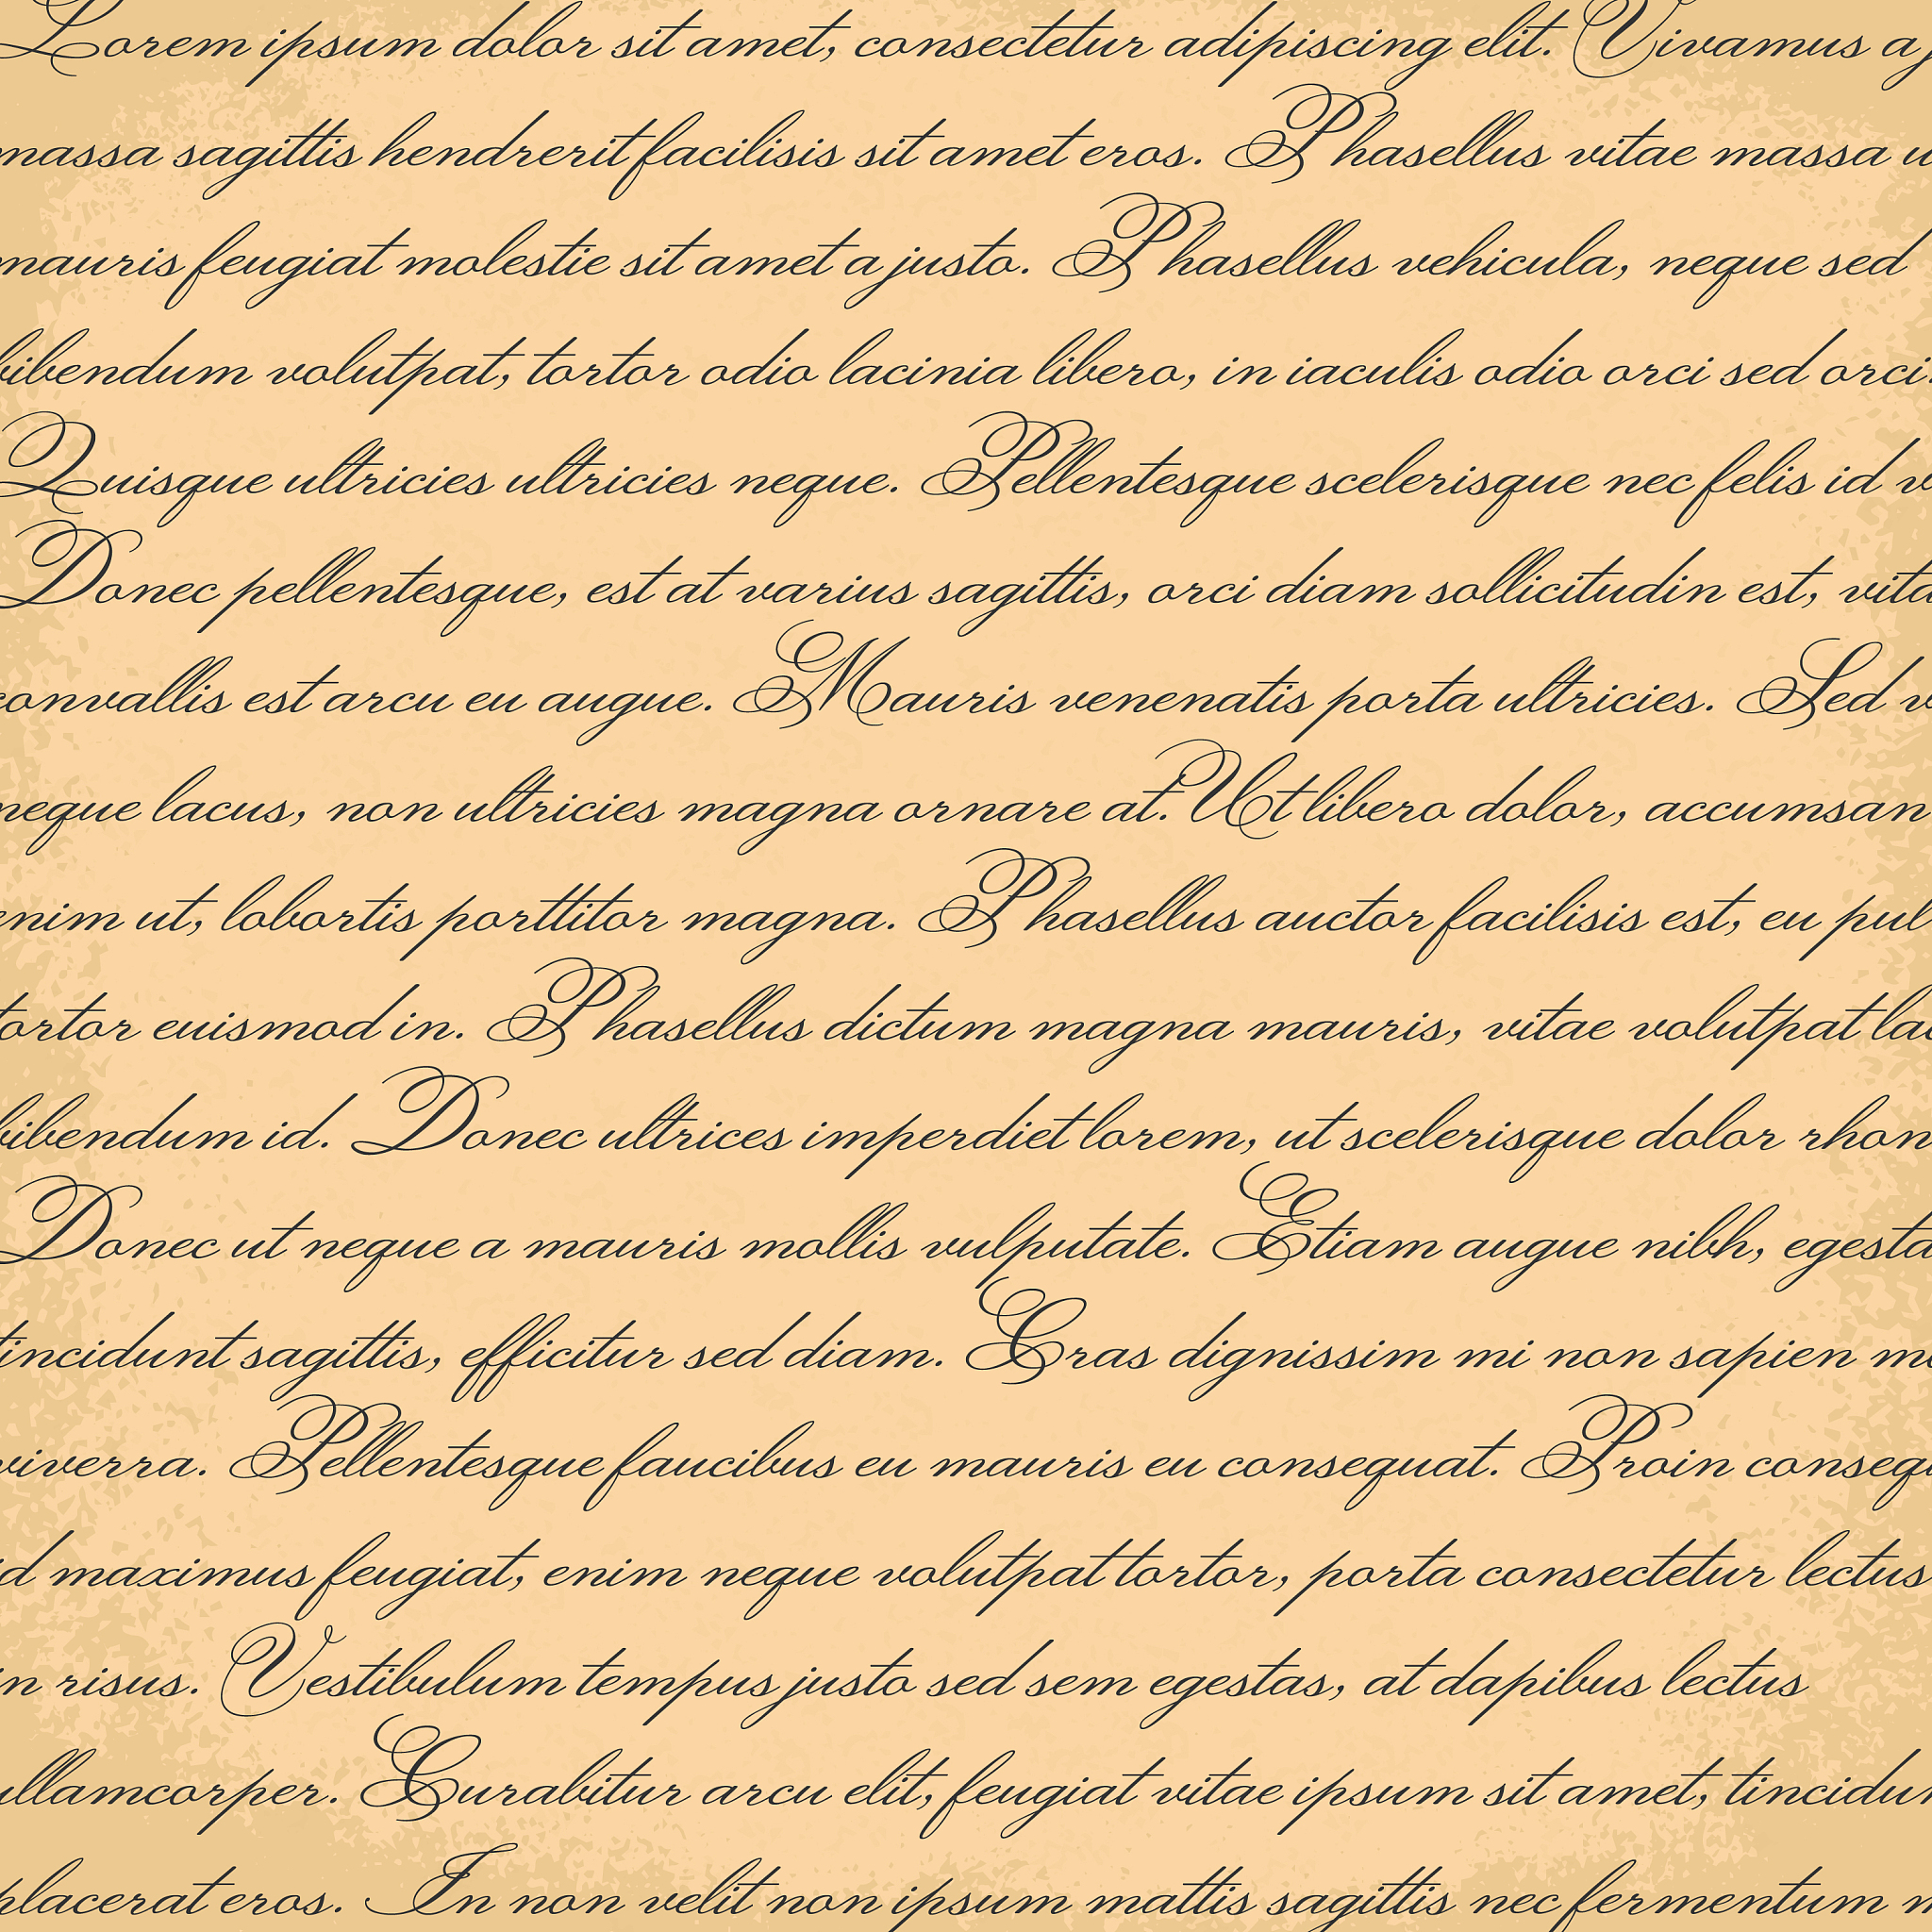 Lorem ipsum dolor sit amet, consectetur adipiscing elit. Vivamus a
massa sagittis hendrerit facilisis sit amet eros. Phasellus vitae massa
mauris feugiat molestie sit amet a justo. Phasellus vehicula, neque sed
bibendum volutpat, tortor odio lacinia libero, in iaculis odio orci sed orci.
Quisque ultricies ultricies neque. Pellentesque scelerisque nec felis id
Donec pellentesque, est at varius sagittis, orci diam sollicitudin est,
convallis est arcu eu augue. Mauris venenatis porta ultricies. Sed
neque lacus, non ultricies magna ornare at. Ut libero dolor, accumsan
enim ut, lobortis porttitor magna. Phasellus auctor facilisis est, eu pul
tortor euismod in. Phasellus dictum magna mauris, vitae volutpat
bibendum id. Donec ultrices imperdiet lorem, ut scelerisque dolor rhon
Donec ut neque a mauris mollis vulputate. Etiam augue nibh, egesta
tincidunt sagittis, efficitur sed diam. Cras dignissim mi non sapien
viverra. Pellentesque faucibus eu mauris eu consequat. Proin consequ
id maximus feugiat, enim neque volutpat tortor, porta consectetur lectus
in risus. Vestibulum tempus justo sed sem egestas, at dapibus lectus
ullamcorper. Curabitur arcu elit, feugiat vitae ipsum sit amet, tincidun
placerat eros. In non velit non ipsum mattis sagittis nec fermentum